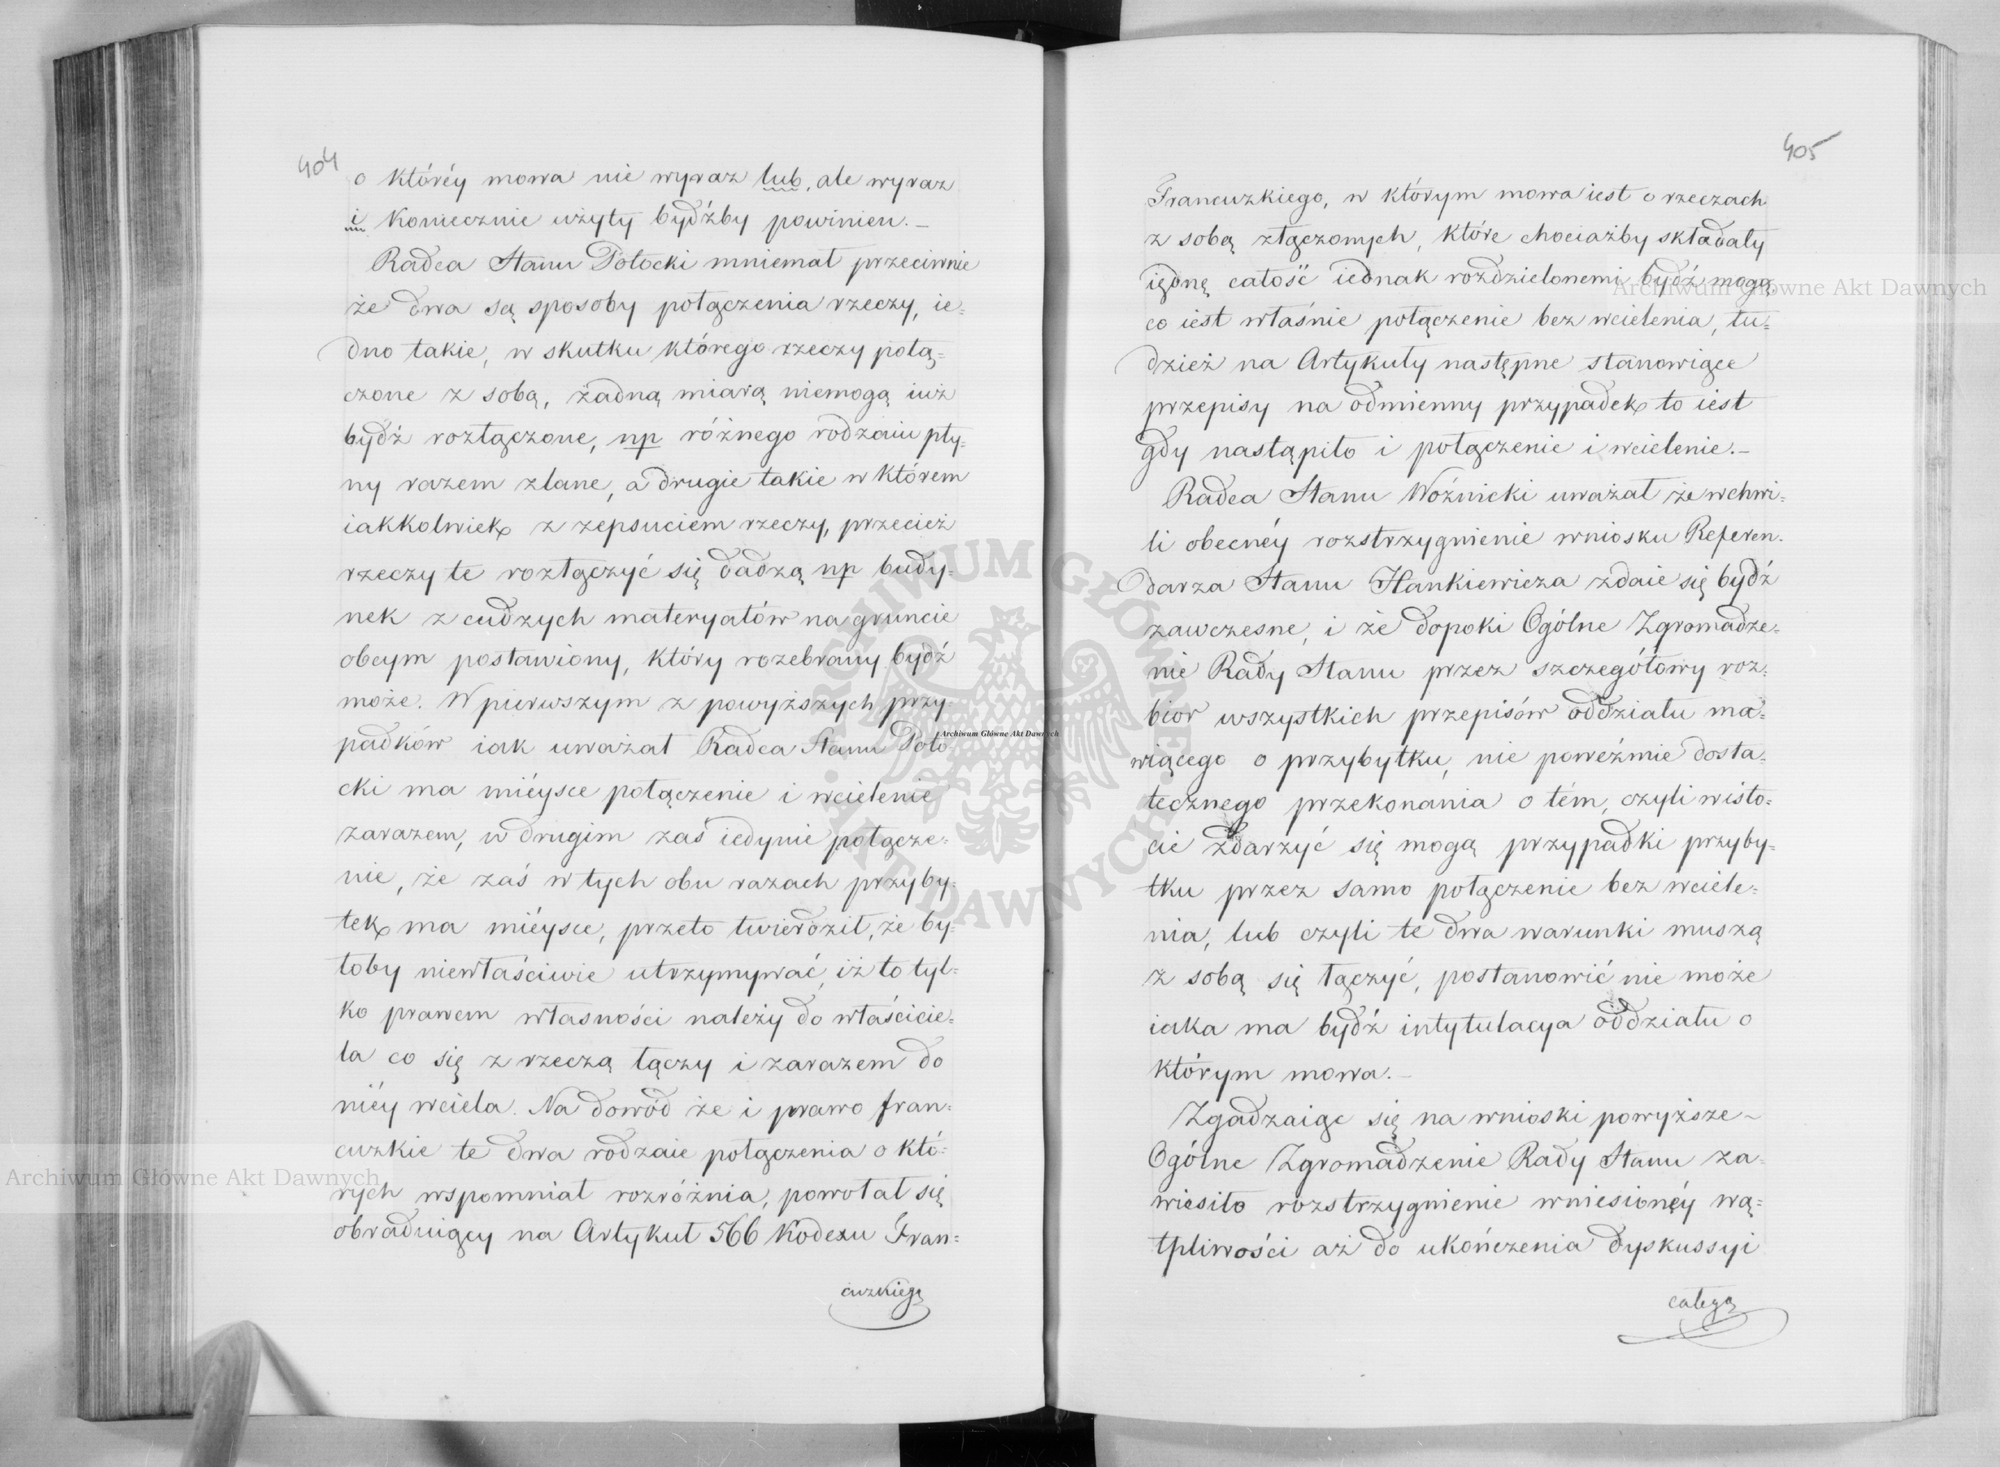 404
o któréy mowa nie wyraz lub, ale wyraz
i koniecznie użyty bydźby powinien.—
Radca Stanu Potocki mniemał przeciwnie
że dwa są sposoby połączenia rzeczy, ie=
dno takie, w skutku którego rzeczy połą=
czone z sobą, żadną miarą niemogą iuż
bydź rozłączone, np różnego rodzaiu pły=
ny razem zlane, a drugie takie w którem
iakkolwiek z zepsuciem rzeczy, przecież
rzeczy te rozłączyć się dadzą np budy=
nek z cudzych materyałów na gruncie
obcym postawiony, który rozebrany bydź
może. W pierwszym z powyższych przy=
padków iak uważał Radca Stanu Poto
cki ma miéysce połączenie i wcielenie
zarazem, w drugim zaś iedynie połącze=
nie, że zaś w tych obu razach przyby=
tek ma miéysce, przeto twierdził, że by=
łoby niewłaściwie utrzymywać, iż to tyl=
ko prawem własności należy do właścicie=
la co się z rzeczą łączy i zarazem do
niéy wciela. Na dowód że i prawo fran=
cuzkie te dwa rodzaie połączenia o któ=
rych wspomniał rozróżnia, powołał się
obraduiący na Artykuł 566 Kodexu Fran=
cuzkiego
405
Francuzkiego, w którym mowa iest o rzeczach
z sobą złączonych, które chociażby składały
iędnę całość iednak rozdzielonemi bydź mogą,
co iest właśnie połączenie bez wcielenia, tu=
dzież na Artykuły następne stanowiące
przepisy na odmienny przypadek to iest
gdy nastąpiło i połączenie i wcielenie.—
Radca Stanu Woźnicki uważał że w chwi=
li obecnéy rozstrzygnienie wniosku Referen=
darza Stanu Hankiewicza zdaie się bydź
zawczesne, i że dopoki Ogólne Zgromadze=
nie Rady Stanu przez szczegółowy roz=
bior wszystkich przepisów oddziału ma=
wiącego o przybytku, nie poweźmie dosta=
tecznego przekonania o tém, czyli w isto=
cie zdarzyć się mogą przypadki przyby=
tku przez samo połączenie bez wciele=
nia, lub czyli te dwa warunki muszą
z sobą się łączyć, postanowić nie może
iaka ma bydź intytulacya oddziału o
którym mowa.—
Zgadzaiąc się na wnioski powyższe—
Ogólne Zgromadzenie Rady Stanu za=
wiesiło rozstrzygnienie wniesionéy wą=
tpliwości aż do ukończenia dyskussyi
całego
Archiwum Główne Akt Dawnych
Archiwum Główne Akt Dawnych
Archiwum Główne Akt Dawnych
ARCHIWUM GŁÓWNE · AKT DAWNYCH ·